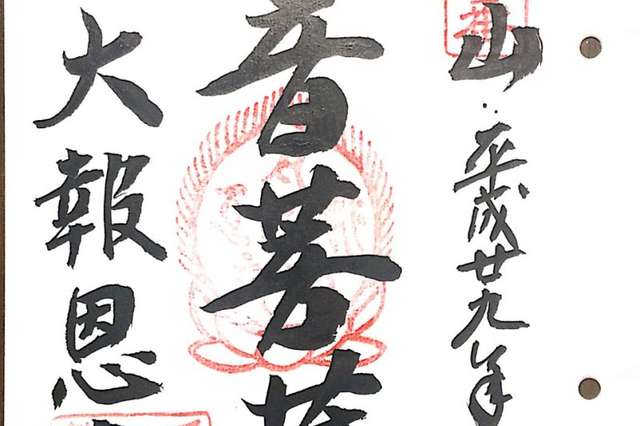 山 平成廿九年
音菩薩
大報恩